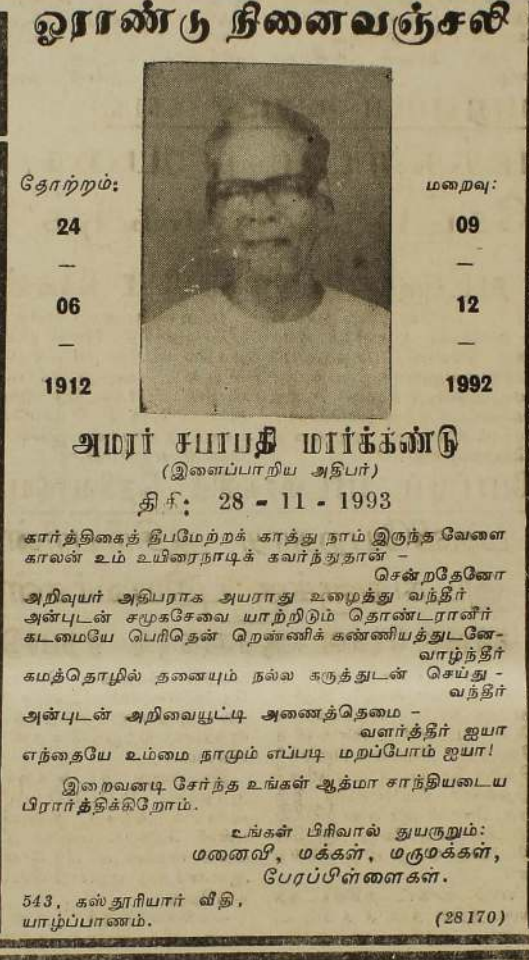 ஓராண்டு நினைவஞ்சலி
தோற்றம்:
24
—
06
—
1912
மறைவு:
09
—
12
—
1992
அமரர் சபாபதி மார்க்கண்டு
(இளைப்பாறிய அதிபர்)
திதி: 28 - 11 - 1993
கார்த்திகைத் தீபமேற்றக் காத்து நாம் இருந்த வேளை
காலன் உம் உயிரைநாடிக் கவர்ந்துதான் –
சென்றதேனோ
அறிவுயர் அதிபராக அயராது உழைத்து வந்தீர்
அன்புடன் சமூகசேவை யாற்றிடும் தொண்டரானீர்
கடமையே பெரிதென் றெண்ணிக் கண்ணியத்துடனே-
வாழ்ந்தீர்
கமத்தொழில் தனையும் நல்ல கருத்துடன் செய்து -
வந்தீர்
அன்புடன் அறிவையூட்டி அணைத்தெமை –
வளர்த்தீர் ஐயா
எந்தையே உம்மை நாமும் எப்படி மறப்போம் ஐயா!
இறைவனடி சேர்ந்த உங்கள் ஆத்மா சாந்தியடைய
பிரார்த்திக்கிறோம்.
உங்கள் பிரிவால் துயருறும்:
மனைவி, மக்கள், மருமக்கள்,
பேரப்பிள்ளைகள்.
543, கஸ்தூரியார் வீதி,
யாழ்ப்பாணம்.
(28170)